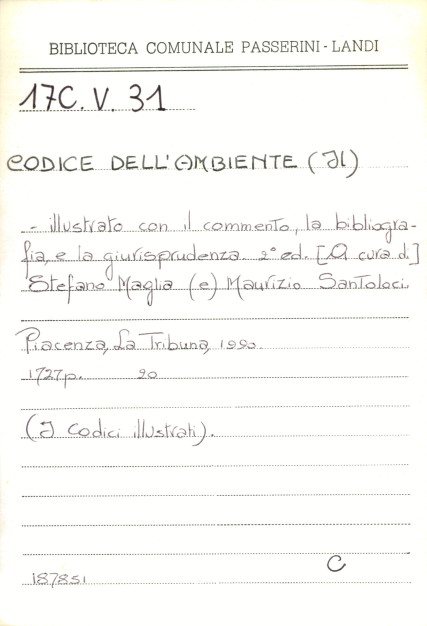 BIBLIOTECA COMUNALE PASSERINI - LANDI
17C. V. 31
CODICE DELL'AMBIENTE (Il)
- illustrato con il commento, la bibliogra-
fia, e la giurisprudenza. 2° ed. [A cura di]
Stefano Maglia (e) Maurizio Santoloci.
Piacenza, La Tribuna, 1990.
1727p. 20
(I Codici illustrati).
C
187851